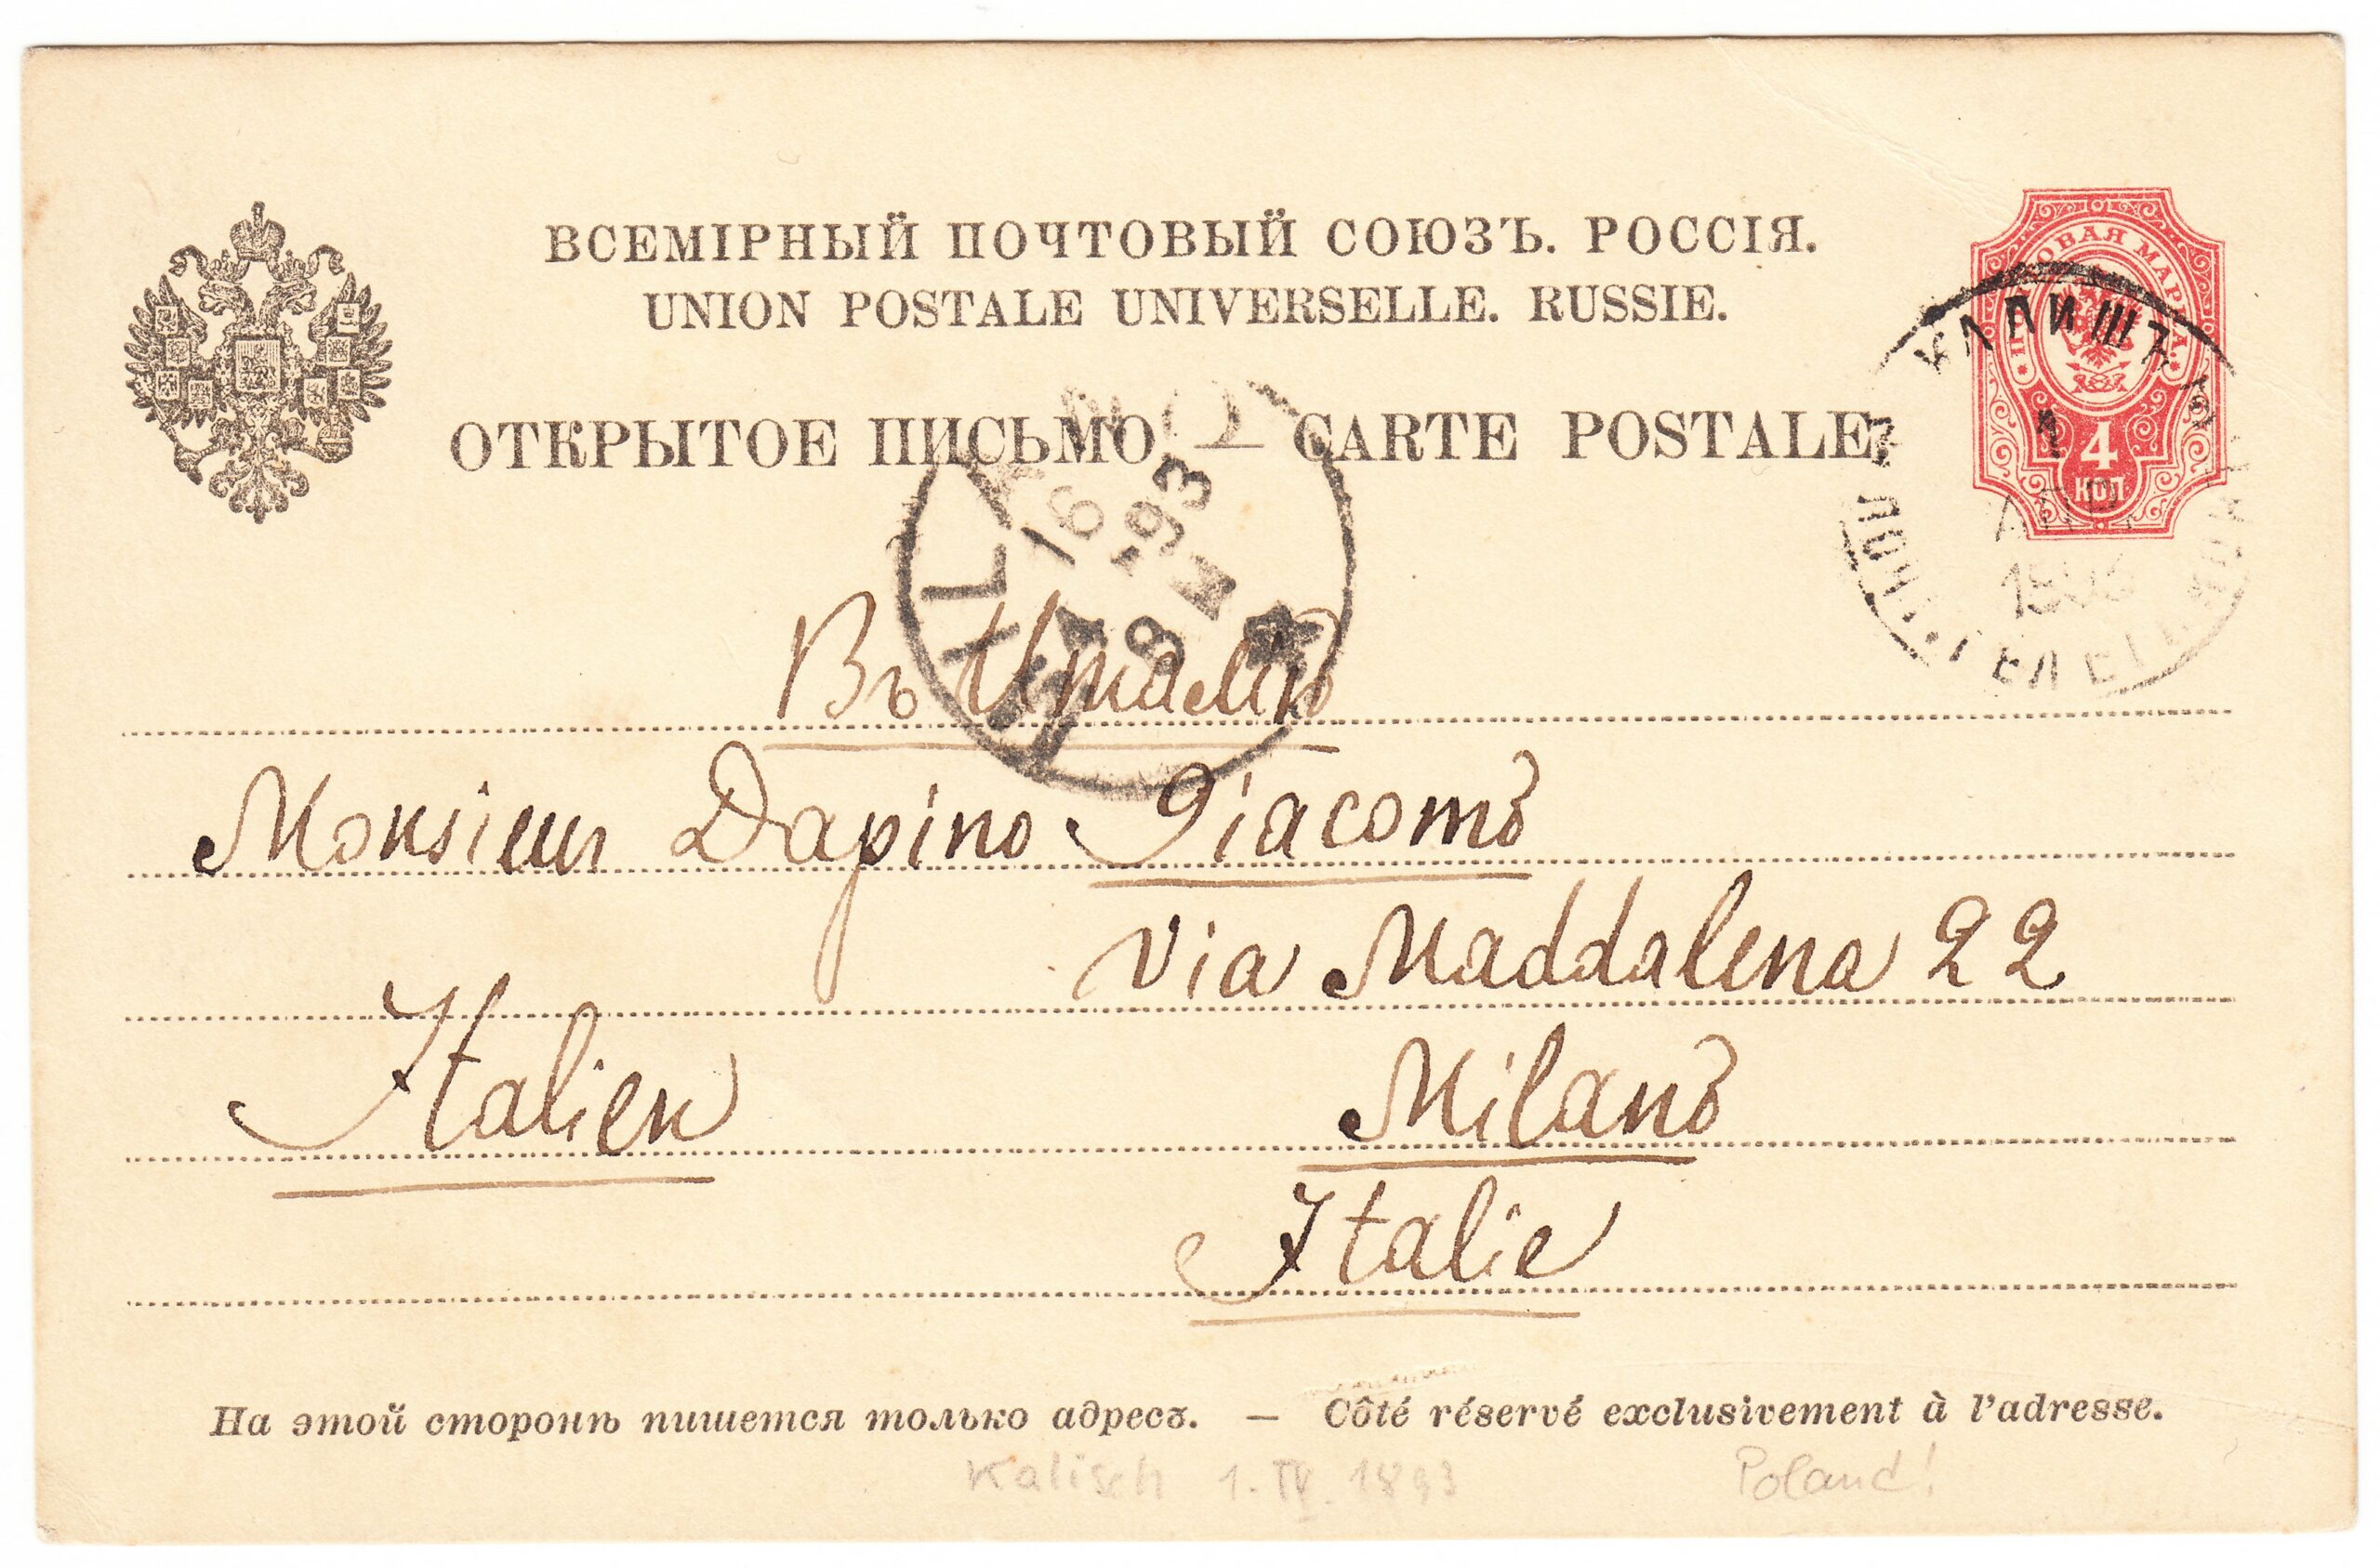 ВСЕМІРНЫЙ ПОЧТОВЫЙ СОЮЗЪ. РОССІЯ.
UNION POSTALE UNIVERSELLE. RUSSIE.
ПОЧТОВАЯ МАРКА
4
КОП
КАЛИШЪ
1
АПР.
ОТКРЫТОЕ ПИСЬМО. — CARTE POSTALE.
MILANO
16 4
-93
8 M
Въ Италію
Monsieur Dapino Giacomo
via Maddalena 22
Italien Milano
Italie
На этой сторонѣ пишется только адресъ. — Côté réservé exclusivement à l'adresse.
Kalisch 1. IV. 1893 Poland!